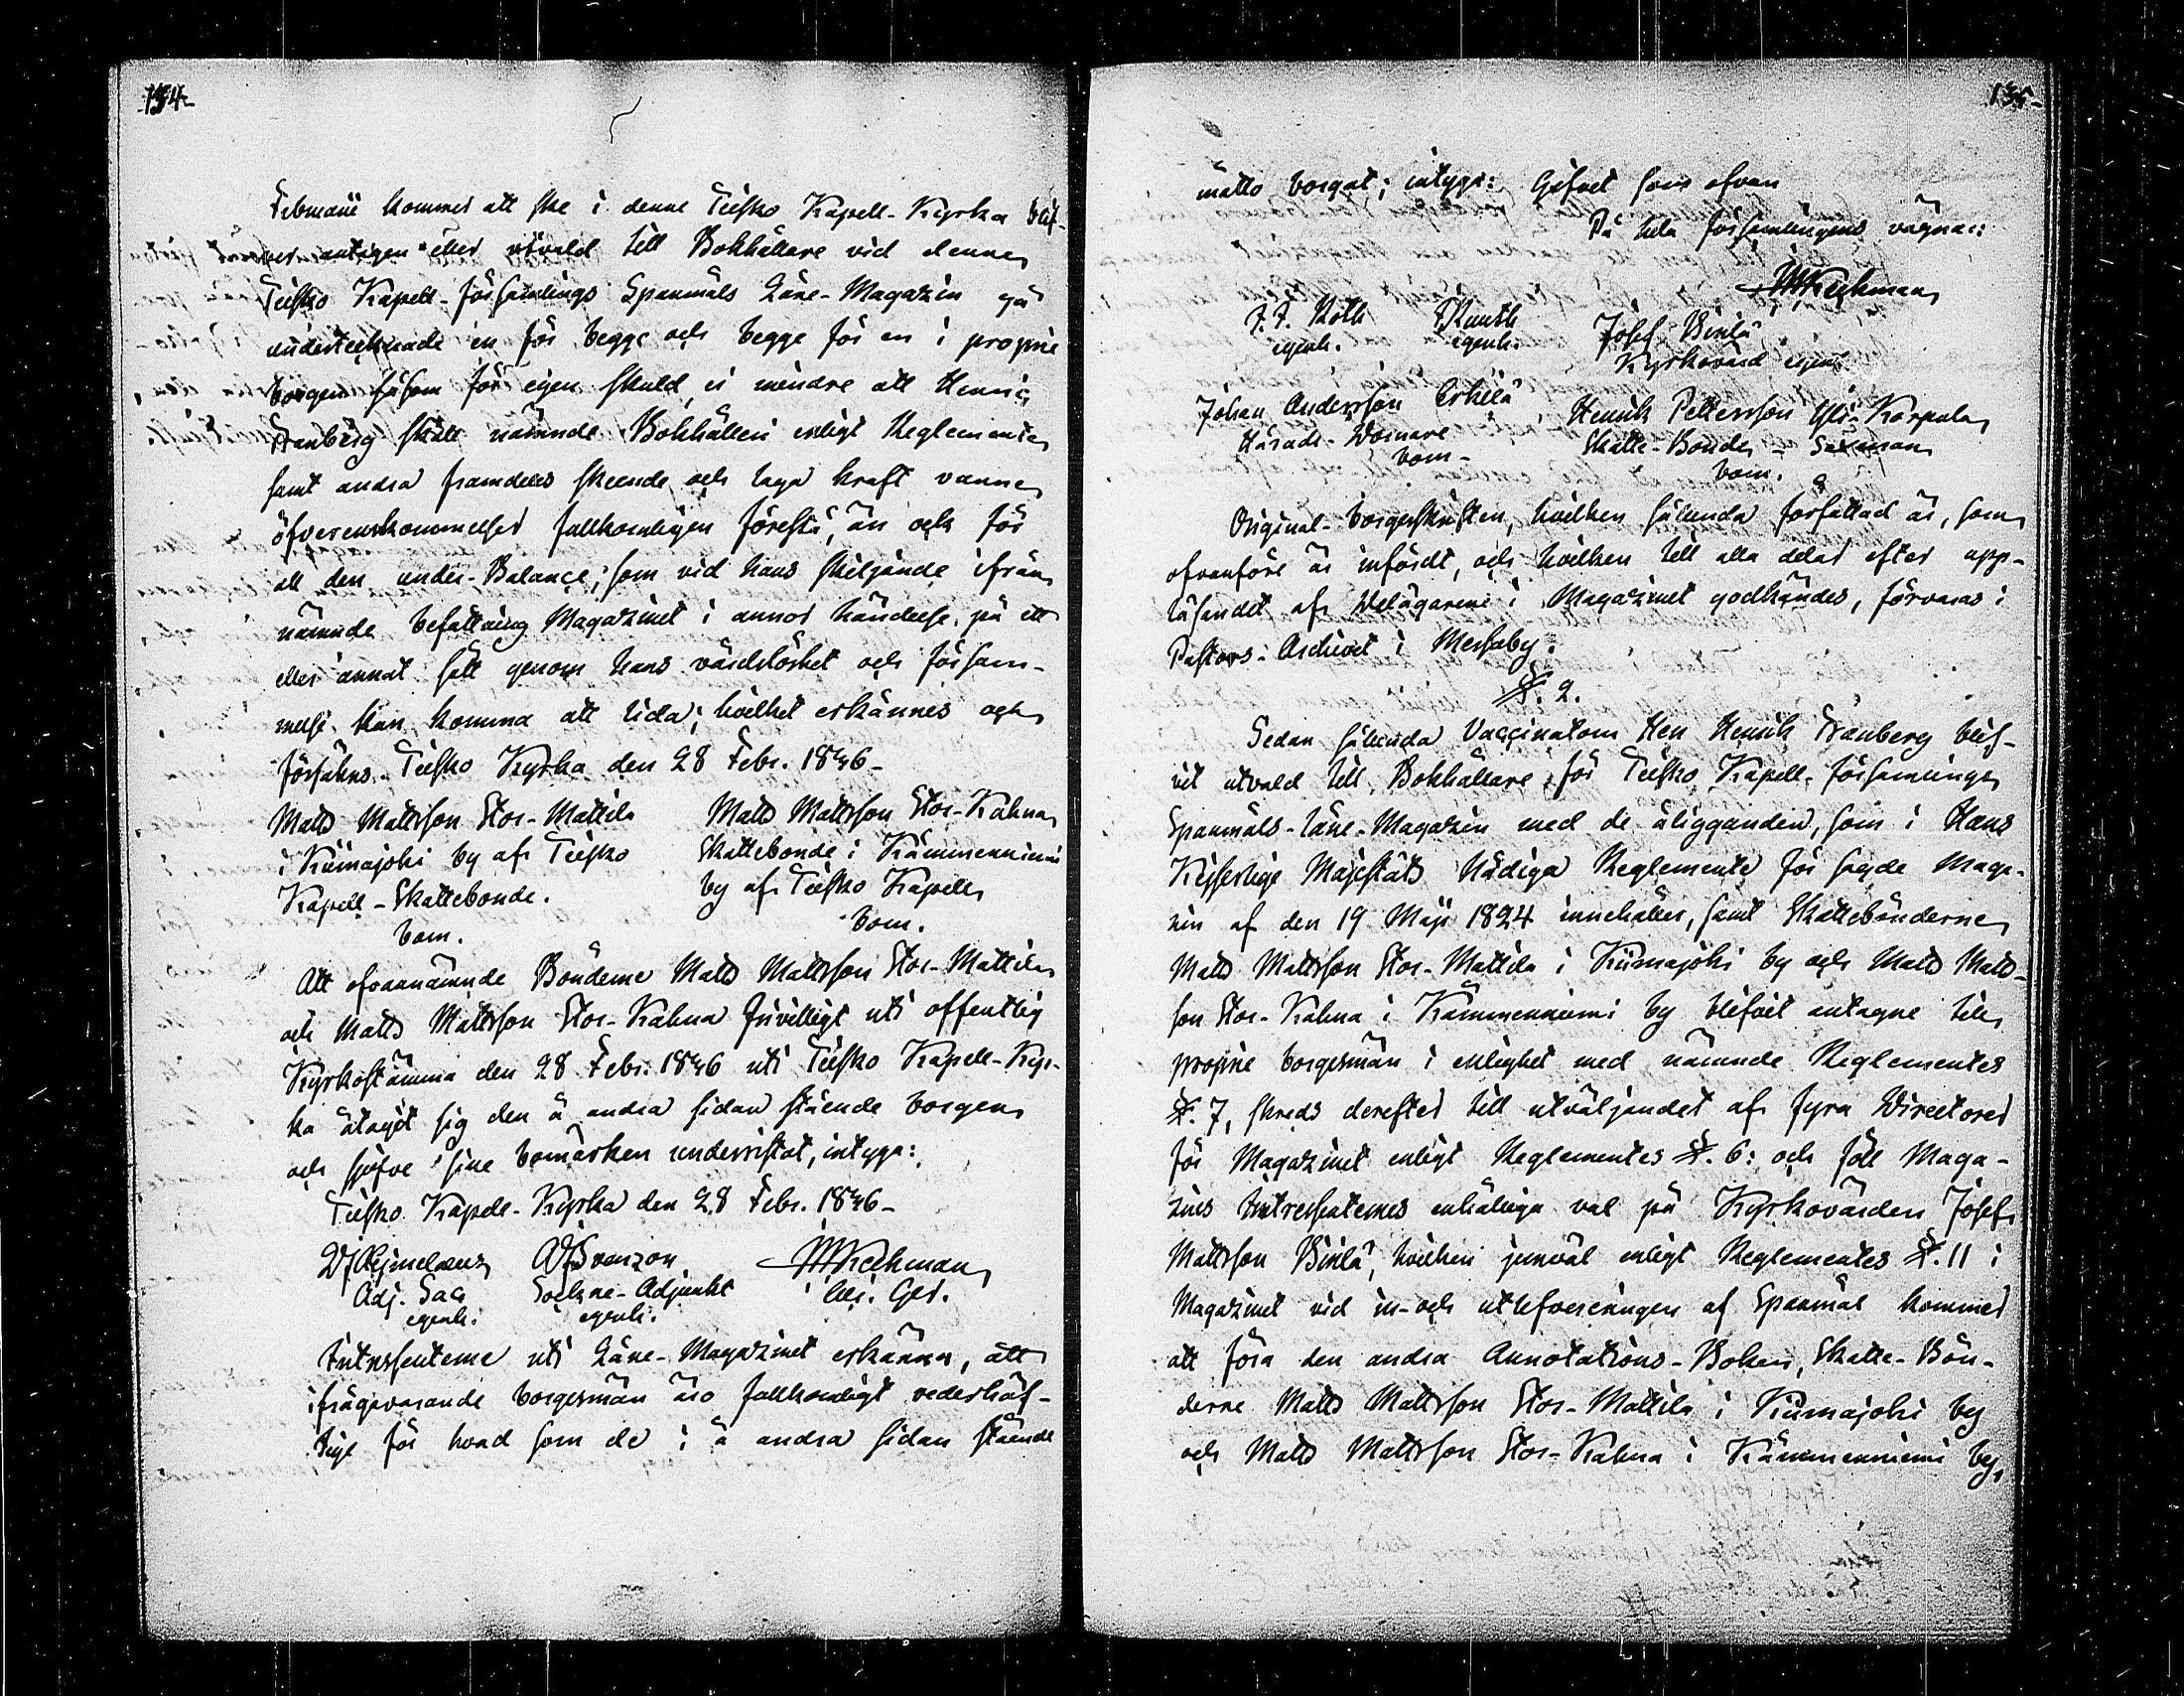 134.
Februarii kommer att ske i denne Teisko Kapell-Kyrka blif-
ver antagen eller utvald till Bokhållare vid denne
Teisko Kapell-församlings Spanmåls Låne-Magazin gå
undertecknade en för begge och begge för en i proprie
borgen såsom för egen skuld, ej mindre att Henric
Tranberg skall nämnde Bokhålleri enligt Reglemente
samt andra framdeles skeende och laga kraft vunne
öfverenskommelser fullkomligen förestå, än ock för
all den under-Balance, som vid hans skiljande ifrån
nämnde befattning Magazinet i annor händelse, på ett
eller annat sätt genom hans vårdslöshet och försum-
melse kan komma att lida; hvilket erkännes och
försäkras. Teisko Kyrka den 28 Febr. 1846-
Matts Mattsson Stor-Mattila
i Kiimajoki by af Teisko
Kapell-Skattebonde.
bom.
Matts Mattsson Stor-Kahua
Skattebonde i Kämmenniemi
by af Teisko Kapell
bom.
Att ofvannämnde Bönderne Matts Mattsson Stor-Mattila
och Matts Mattsson Stor-Kahua frivilligt uti offentlig
Kyrkostämma den 28 Febr. 1846 uti Teisko Kapell-Kyr-
ka åtagit sig den å andra sidan stående borgen
och sjelfve sine bomärken underristat, intyga:
Teisko Kapell-Kyrka den 28 Febr. 1846-
Adj. Sac
egenh.
Sockne-Adjunkt
egenh.
Intressenterne uti Låne-Magazinet erkänna, att
ifrågavarande borgesmän äro fullkomligt vederhäf-
tige för hvad som de i å andra sidan stående
135.
måtto borgat; intyga: Gifvet som ofvan
På hela församlingens vägnar:
egenh.
egenh.
Josef
Kyrkovärd egenh.
Johan Andersson Erkilä
Härads-Domare
bom-
Henrik Pettersson Yli-Karpala
Skatte-Bonde - Sexman
bom.
Original-borgesskriften, hvilken sålunda författad är, som
ofvanföre är infördt, och hvilken till alla delar efter upp-
läsandet af Delägarene i Magazinet godkändes, förvaras i
Pastors-Archivet i Messuby.
§. 2.
Sedan sålunda Vaccinatorn Herr Henrik Tranberg blif-
vit utvald till Bokhållare för Teisko Kapell-församlings
Spanmåls-låne-Magazin med de åligganden, som i Hans
Kejserlige Majestäts Nådiga Reglemente för sagde Maga-
zin af den 19 Maji 1824 innehålles, samt Skattebönderne
Matts Mattsson Stor-Mattila i Kiimajoki by och Matts Matts-
son Stor-Kahua i Kämmenniemi by blifvit antagne till
proprie borgesmän i enlighet med nämnde Reglementes
§. 7, skreds derefter till utväljandet af fyra Directorer
för Magazinet enligt Reglementes §. 6: och föll Maga-
zins Intressenternes enhälliga val på Kyrkovärden Josef
Mattsson, hvilken jemväl enligt Reglementes §. 11 i
Magazinet vid in- och utlefvereringen af Spanmål kommer
att föra den andra Annotations-Boken, Skatte-Bön-
derne Matts Mattsson Stor-Mattila i Kiimajoki by
och Matts Mattsson Stor-Kahua i Kämmenniemi by,